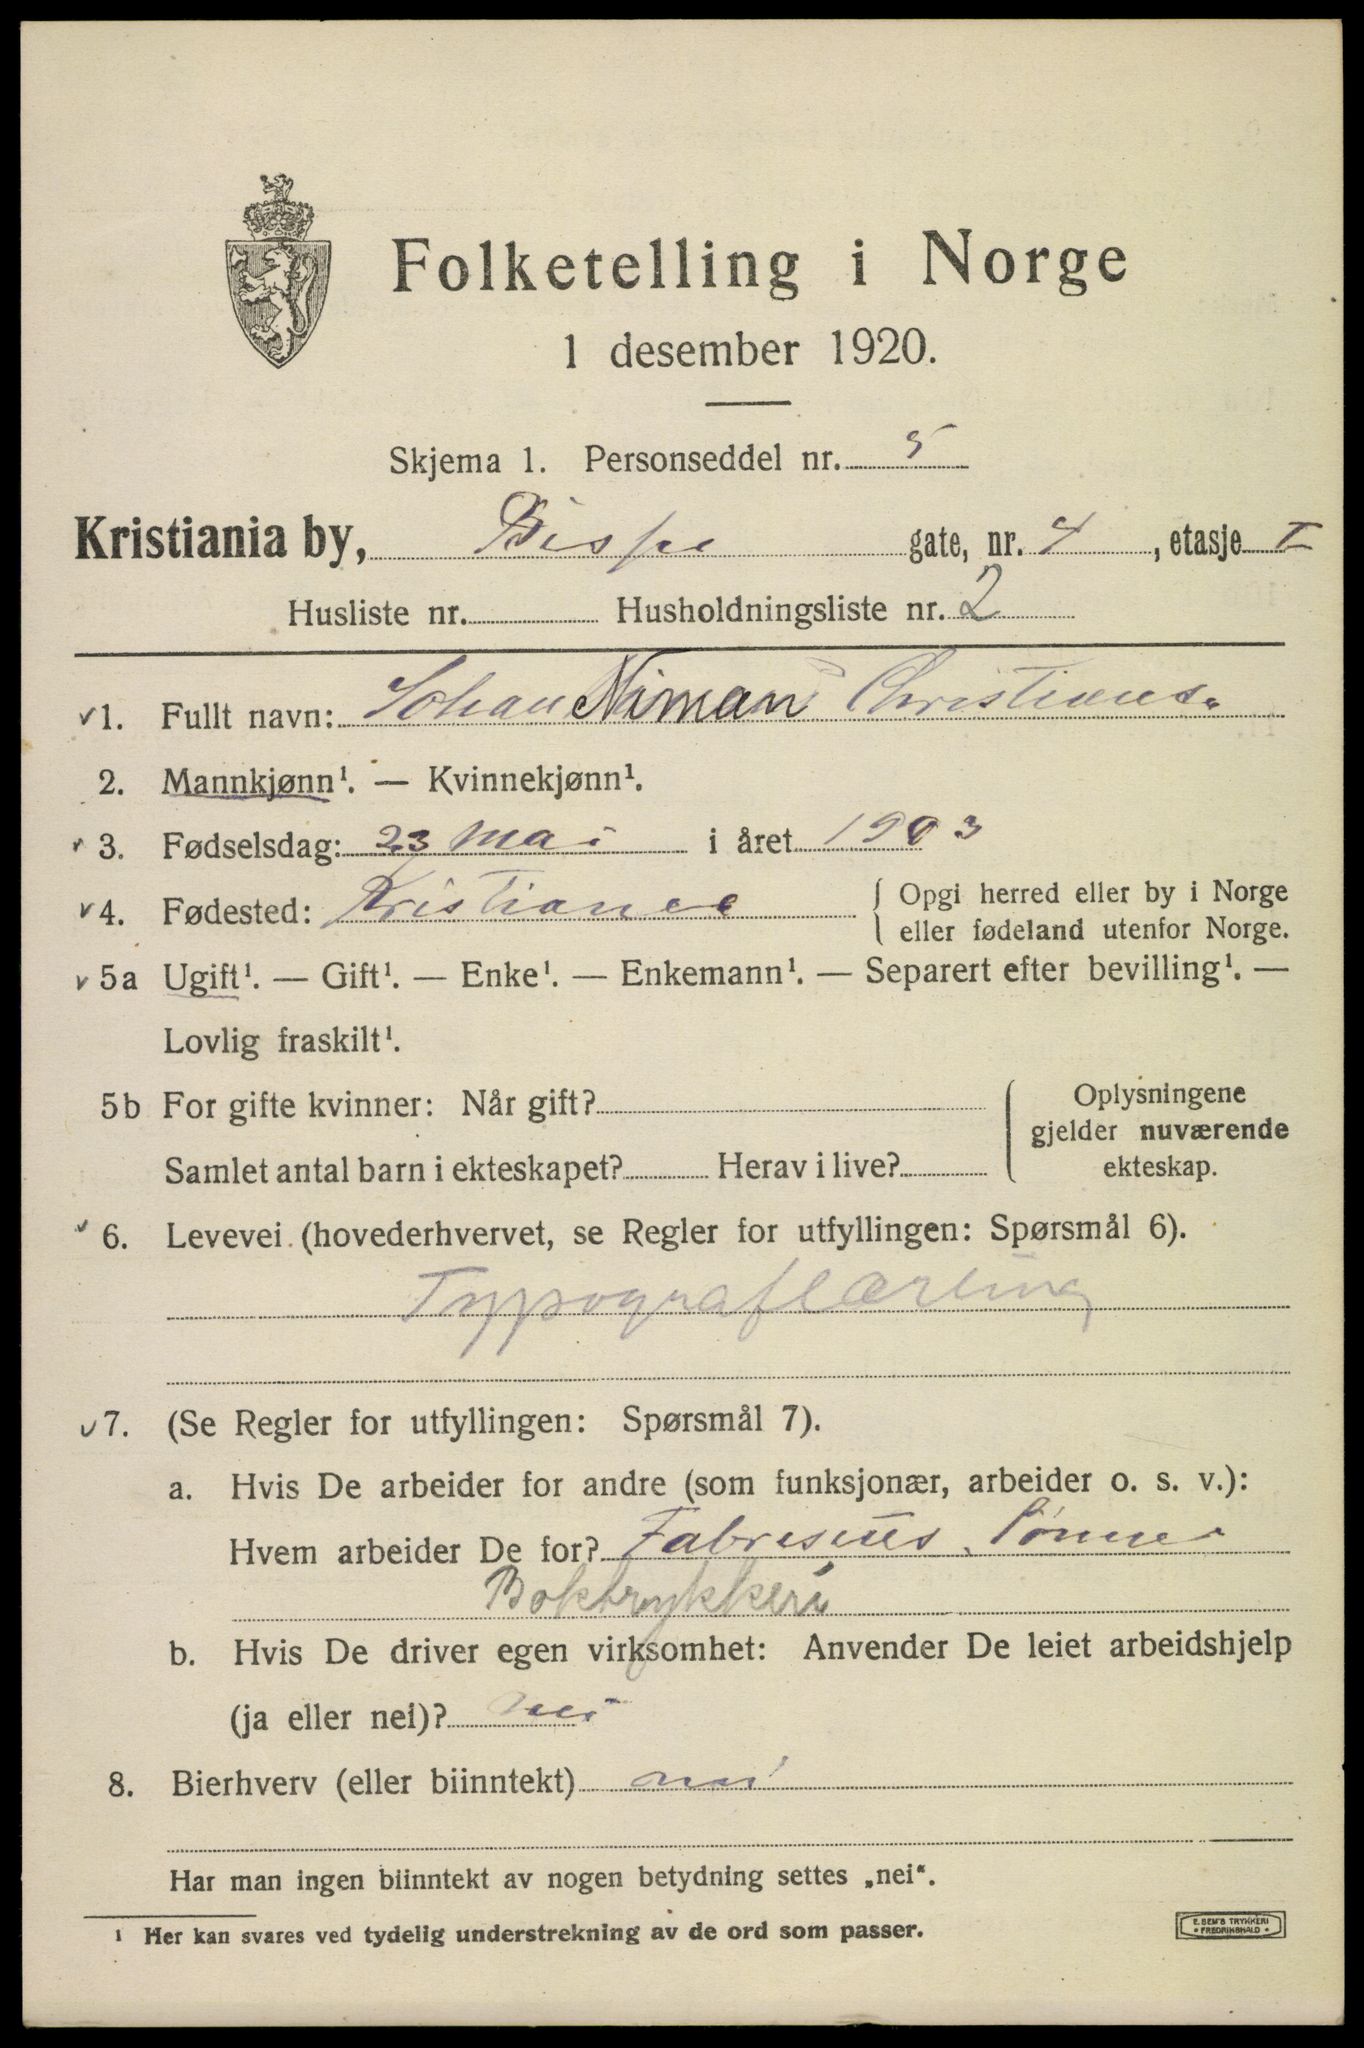 Folketelling i Norge
1 desember 1920.
Skjema 1. Personseddel nr. 5
Kristiania by, Bispe gate, nr. 4, etasje I
Husliste nr. Husholdningsliste nr. 2
1. Fullt navn: Johan Niman Christians.
2. Mannkjønn¹. — Kvinnekjønn¹.
3. Fødselsdag: 23 Mai i året 1903
4. Fødested: Kristiania { Opgi herred eller by i Norge
eller fødeland utenfor Norge.
5a Ugift¹. — Gift¹. — Enke¹. — Enkemann¹. — Separert efter bevilling¹. —
Lovlig fraskilt¹.
5b For gifte kvinner: Når gift?
Samlet antal barn i ekteskapet? Herav i live?
Oplysningene
gjelder nuværende
ekteskap.
6. Levevei (hovederhvervet, se Regler for utfyllingen: Spørsmål 6).
Typograflærling
7. (Se Regler for utfyllingen: Spørsmål 7).
a. Hvis De arbeider for andre (som funksjonær, arbeider o. s. v.):
Hvem arbeider De for? Fabresius Sønner
Boktrykkeri
b. Hvis De driver egen virksomhet: Anvender De leiet arbeidshjelp
(ja eller nei)? nei
8. Bierhverv (eller biinntekt) nei
Har man ingen biinntekt av nogen betydning settes „nei“.
¹ Her kan svares ved tydelig understrekning av de ord som passer.
E. SEM'S TRYKKERI
FREDRIKSHALD